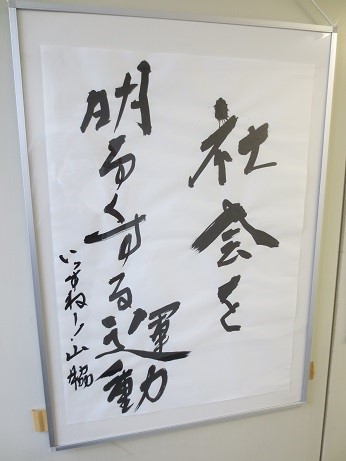 社会を
明るくする運動
いつずねーノ山脇